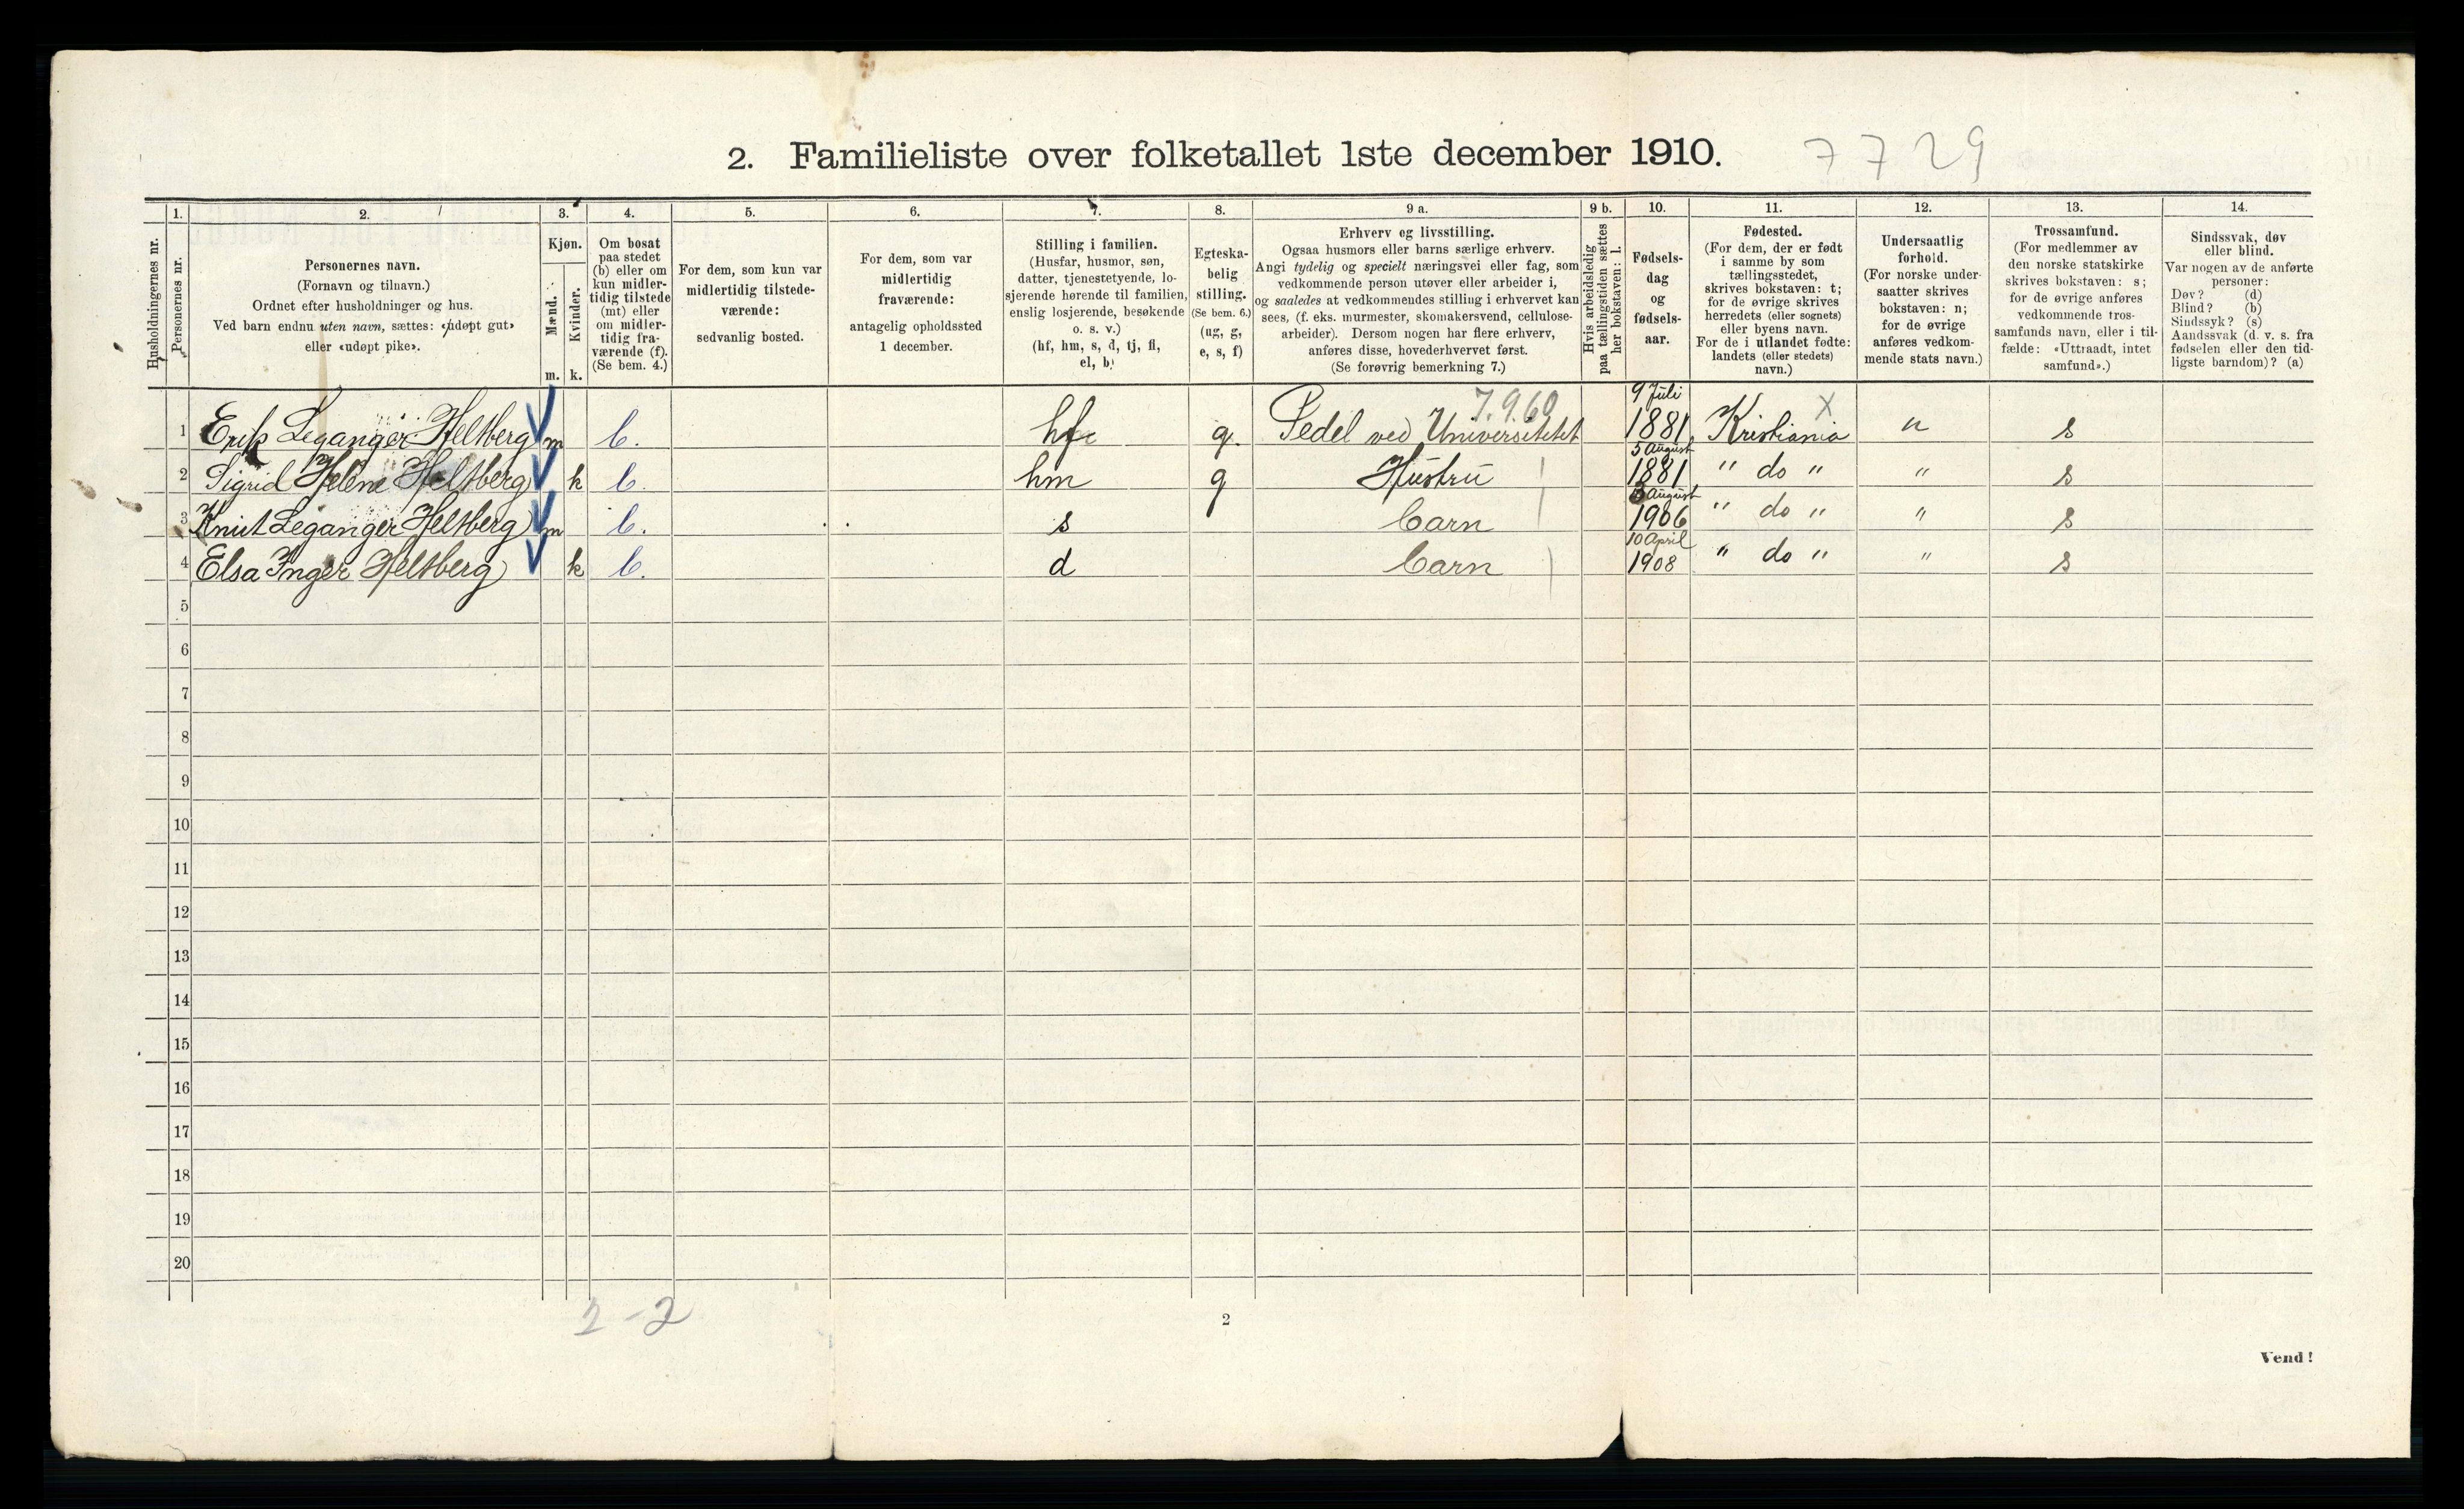 2. Familieliste over folketallet 1ste december 1910. 7729
Husholdningernes nr.
1.
Personernes nr.
2.
Personernes navn.
(Fornavn og tilnavn.)
Ordnet efter husholdninger og hus.
Ved barn endnu uten navn, sættes: «udøpt gut»
eller «udøpt pike».
3.
Kjøn.
Mænd.
m.
Kvinder.
k.
4.
Om bosat
paa stedet
(b) eller om
kun midler-
tidig tilstede
(mt) eller
om midler-
tidig fra-
værende (f).
(Se bem. 4.)
5.
For dem, som kun var
midlertidig tilstede-
værende:
sedvanlig bosted.
6.
For dem, som var
midlertidig
fraværende:
antagelig opholdssted
1 december.
7.
Stilling i familien.
(Husfar, husmor, søn,
datter, tjenestetyende, lo-
sjerende hørende til familien,
enslig losjerende, besøkende
o. s. v.)
(hf, hm, s, d, tj, fl,
el, b)
8.
Egteska-
belig
stilling.
(Se bem. 6.)
(ug, g,
e, s, f)
9 a.
Erhverv og livsstilling.
Ogsaa husmors eller barns særlige erhverv.
Angi tydelig og specielt næringsvei eller fag, som
vedkommende person utøver eller arbeider i,
og saaledes at vedkommendes stilling i erhvervet kan
sees, (f. eks. murmester, skomakersvend, cellulose-
arbeider). Dersom nogen har flere erhverv,
anføres disse, hovederhvervet først.
(Se forøvrig bemerkning 7.)
9 b.
Hvis arbeidsledig
paa tællingstiden sættes
her bokstaven: l.
10.
Fødsels-
dag
og
fødsels-
aar.
11.
Fødested.
(For dem, der er født
i samme by som
tællingsstedet,
skrives bokstaven: t;
for de øvrige skrives
herredets (eller sognets)
eller byens navn.
For de i utlandet fødte:
landets (eller stedets)
navn.)
12.
Undersaatlig
forhold.
(For norske under-
saatter skrives
bokstaven: n;
for de øvrige
anføres vedkom-
mende stats navn.)
13.
Trossamfund.
(For medlemmer av
den norske statskirke
skrives bokstaven: s;
for de øvrige anføres
vedkommende tros-
samfunds navn, eller i til-
fælde: «Uttraadt, intet
samfund».)
14.
Sindssvak, døv
eller blind.
Var nogen av de anførte
personer:
Døv? (d)
Blind? (b)
Sindssyk? (s)
Aandssvak (d. v. s. fra
fødselen eller den tid-
ligste barndom)? (a)
7.9.60 9 Juli X
1 Erik Leganger Heltberg m b. hf g. Pedel ved Universitetet 1881 Kristiania n s
5 August
2 Sigrid Helene Heltberg k b. hm g Hustru 1881 " do " " s
August
3 Knut Leganger Heltberg m b. s barn 1906 " do " " s
10 April
4 Elsa Inger Heltberg k b. d barn 1908 " do " " s
5
6
7
8
9
10
11
12
13
14
15
16
17
18
19
20
2-2
2
Vend!